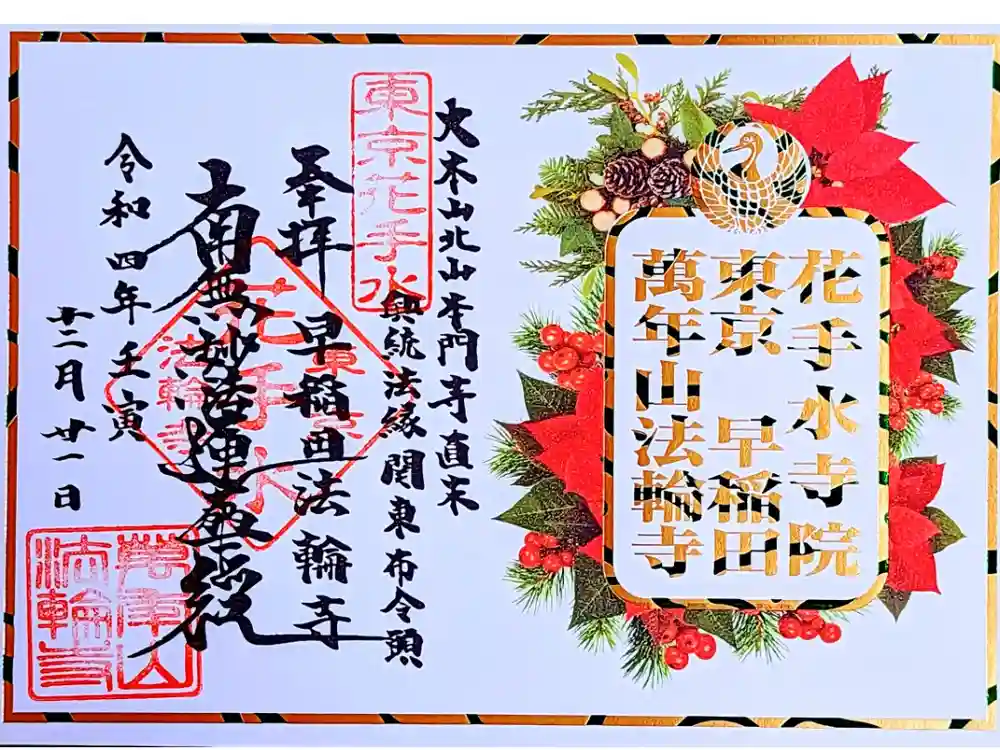 花手水寺院
東京 早稲田
萬年山法輪寺
大本山北山本門寺直末
興統法縁関東布令頭
東京花手水
奉拝 早稲田法輪寺
南無妙法蓮華経
東京
花手水
法輪寺
令和四年壬寅
十二月廿一日
萬年山
法輪寺